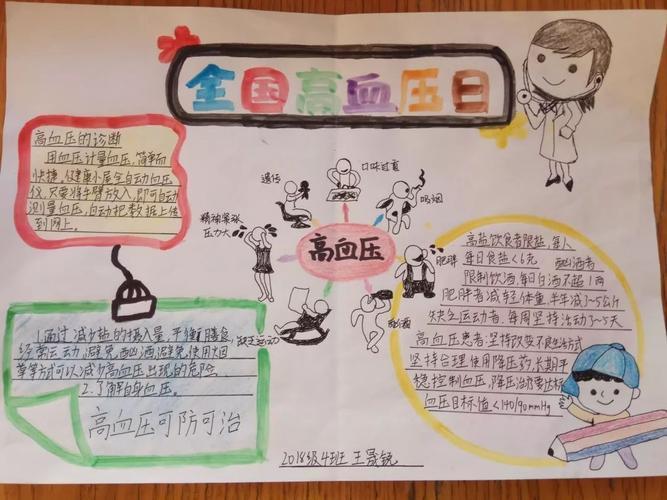 全国高血压日
高血压的诊断
用血压计量血压,简单而
快捷。仅健康小屋全自动血压
仪,只要将手臂放入,即可自动
测量血压,自动把数据上传
到网上。
遗传
口味过重
吸烟
精神紧张
压力大
高血压
肥胖
缺乏运动
酗酒
高盐饮食者限盐,每人
每日食盐<6克 酗酒者
限制饮酒,每日白酒不超1两
肥胖者减轻体重,半年减1~5公斤
缺乏运动者,每周坚持活动了~5天
高血压患者:坚持改变不良生活方式
坚持合理使用降压药,长期平
稳控制血压,降压治疗要达标
血压目标值<140/90mmHg
1.通过减少盐的摄入量,平衡膳食,
经常运动,避免酗酒避免使用烟
草等方式可以减少高血压出现的危险.
2.了解自身血压。
高血压可防可治
2018级4班 王晟锐